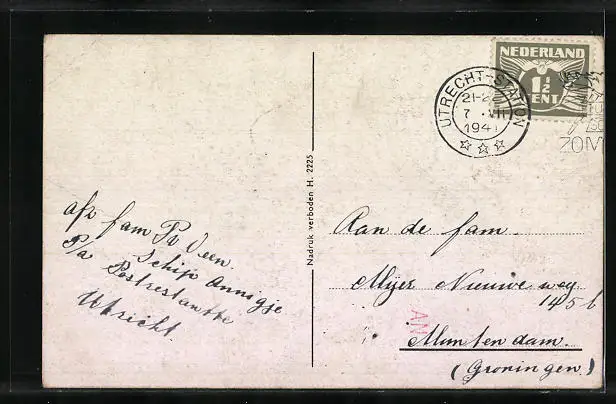 NEDERLAND
1½
CENT
UTRECHT-STATION
7 .VII
1941
ZOM
Nadruk verboden H. 2225
afz fam P. Veen.
Schip Annigje
P/a Postrestantte
Utrecht.
Aan de fam
Meijer Nieuwe weg
145 b
AN
Muntendam.
(Groningen)